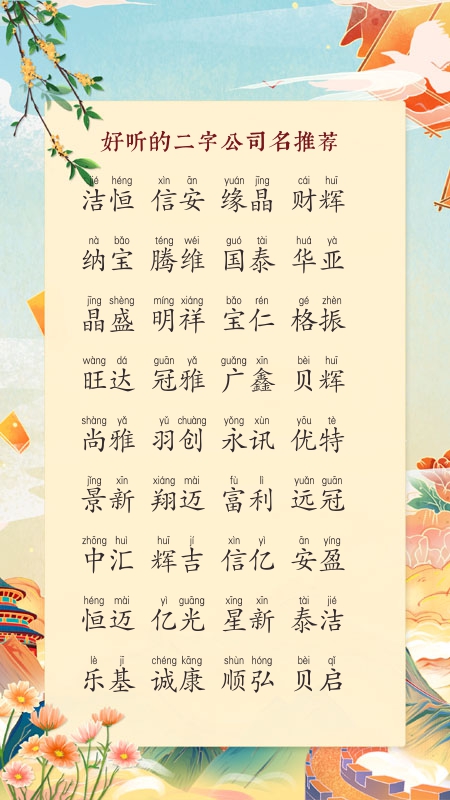 好听的二字公司名推荐
jié héng xìn ān yuán jīng cái huī
洁恒 信安 缘晶 财辉
nà bǎo téng wéi guó tài huá yà
纳宝 腾维 国泰 华亚
jīng shèng míng xiáng bǎo rén gé zhèn
晶盛 明祥 宝仁 格振
wàng dá guān yǎ guǎng xīn bèi huī
旺达 冠雅 广鑫 贝辉
shàng yǎ yǔ chuàng yǒng xùn yōu tè
尚雅 羽创 永讯 优特
jǐng xīn xiáng mài fù lì yuǎn guān
景新 翔迈 富利 远冠
zhōng huì huī jí xìn yì ān yíng
中汇 辉吉 信亿 安盈
héng mài yì guāng xīng xīn tài jié
恒迈 亿光 星新 泰洁
lè jī chéng kāng shùn hóng bèi qǐ
乐基 诚康 顺弘 贝启